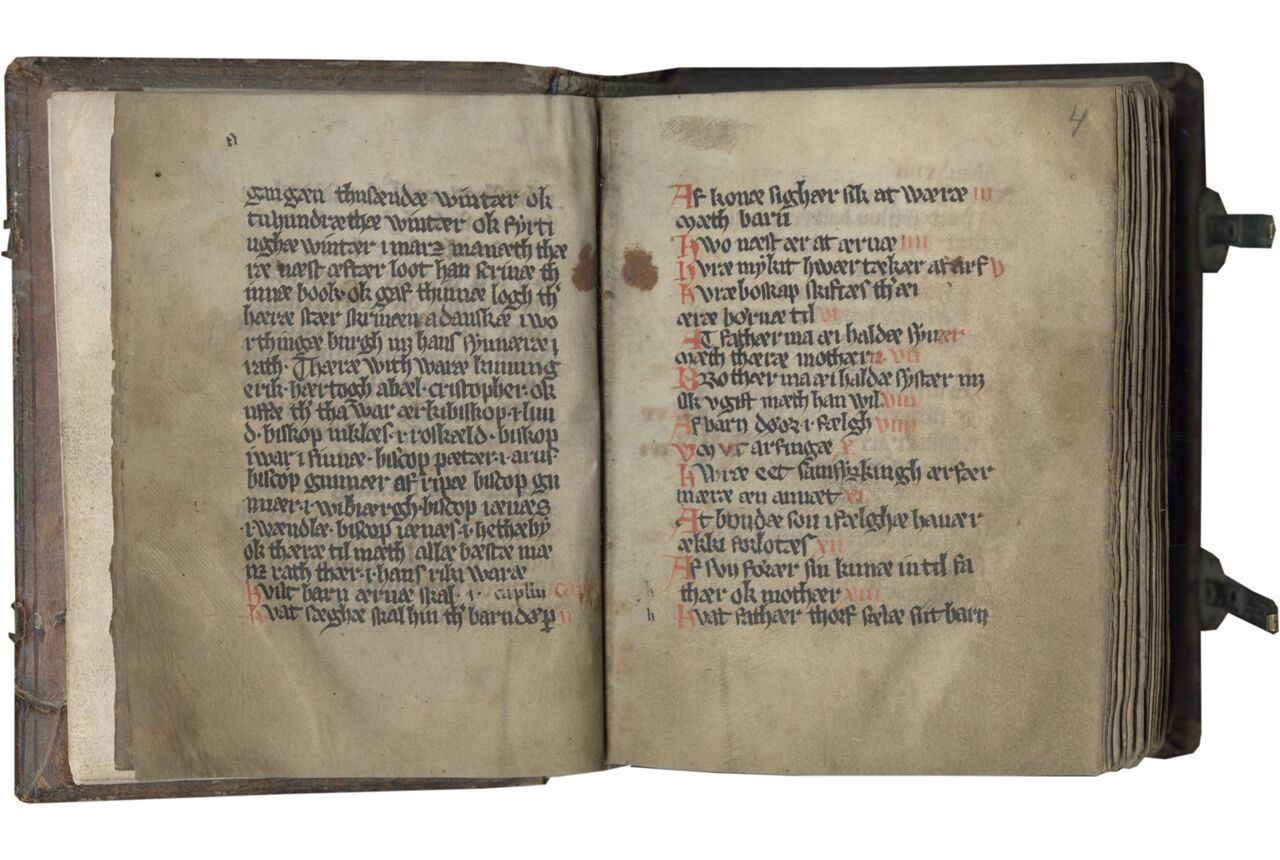 gangæn thusændæ wintær ok
tuhundræthæ wintær ok fyrti
ughæ wintær i marz manæth thæ
ræ næst æftær loot han scriuæ th
innæ book· ok gaf thinnæ logh th
hæræ stær skriuæn a danskæ i wo
rthingæ burgh m3 hans synnæræ i
rath· Thæræ with waræ kunung
erik· hærtogh abæl· cristopher· ok
uffæ th tha war ærkibiskop· i· lun
d· biskop niklæs· i roskæld· biskop
iwar i fiunæ· biscop pætær· i· arus
biscop gunnær af ripæ biscop gu
nnær· i· wibiærgh· biscop iæuæs
i· wændlæ· biscop iæuæs· i· hethæby
ok thæræ til mæth allæ bæstæ mæ
nz rath thær· i· hans riki waræ
hwilt barn æruæ skal· i· caplm
hwat sæghæ skal hin th barn døp ii
4
Af konæ sighær sik at wæræ iii
mæth barn
Hwo næst ær at æruæ iiii
Huræ mykit hwær tækær af arf v
Huræ boskap skiftæs th æi
æræ børnæ til vi
At fathær ma æi haldæ synær
mæth thæræ mothærn· vii
Brothær ma æi haldæ systær m3
sik vgift mæth han wil viii
Af barn døør· i· fælgh viiii
vm vt arfingæ x
Huræ eet samsyzkingh ærfær
mæræ æn annæt xi
At bondæ son i fælghæ hauær
ækki forlotæs xii
Af sun førær sin kunæ in til fa
thær ok mothær xiii
Hvat fathær thorf sælæ sit barn